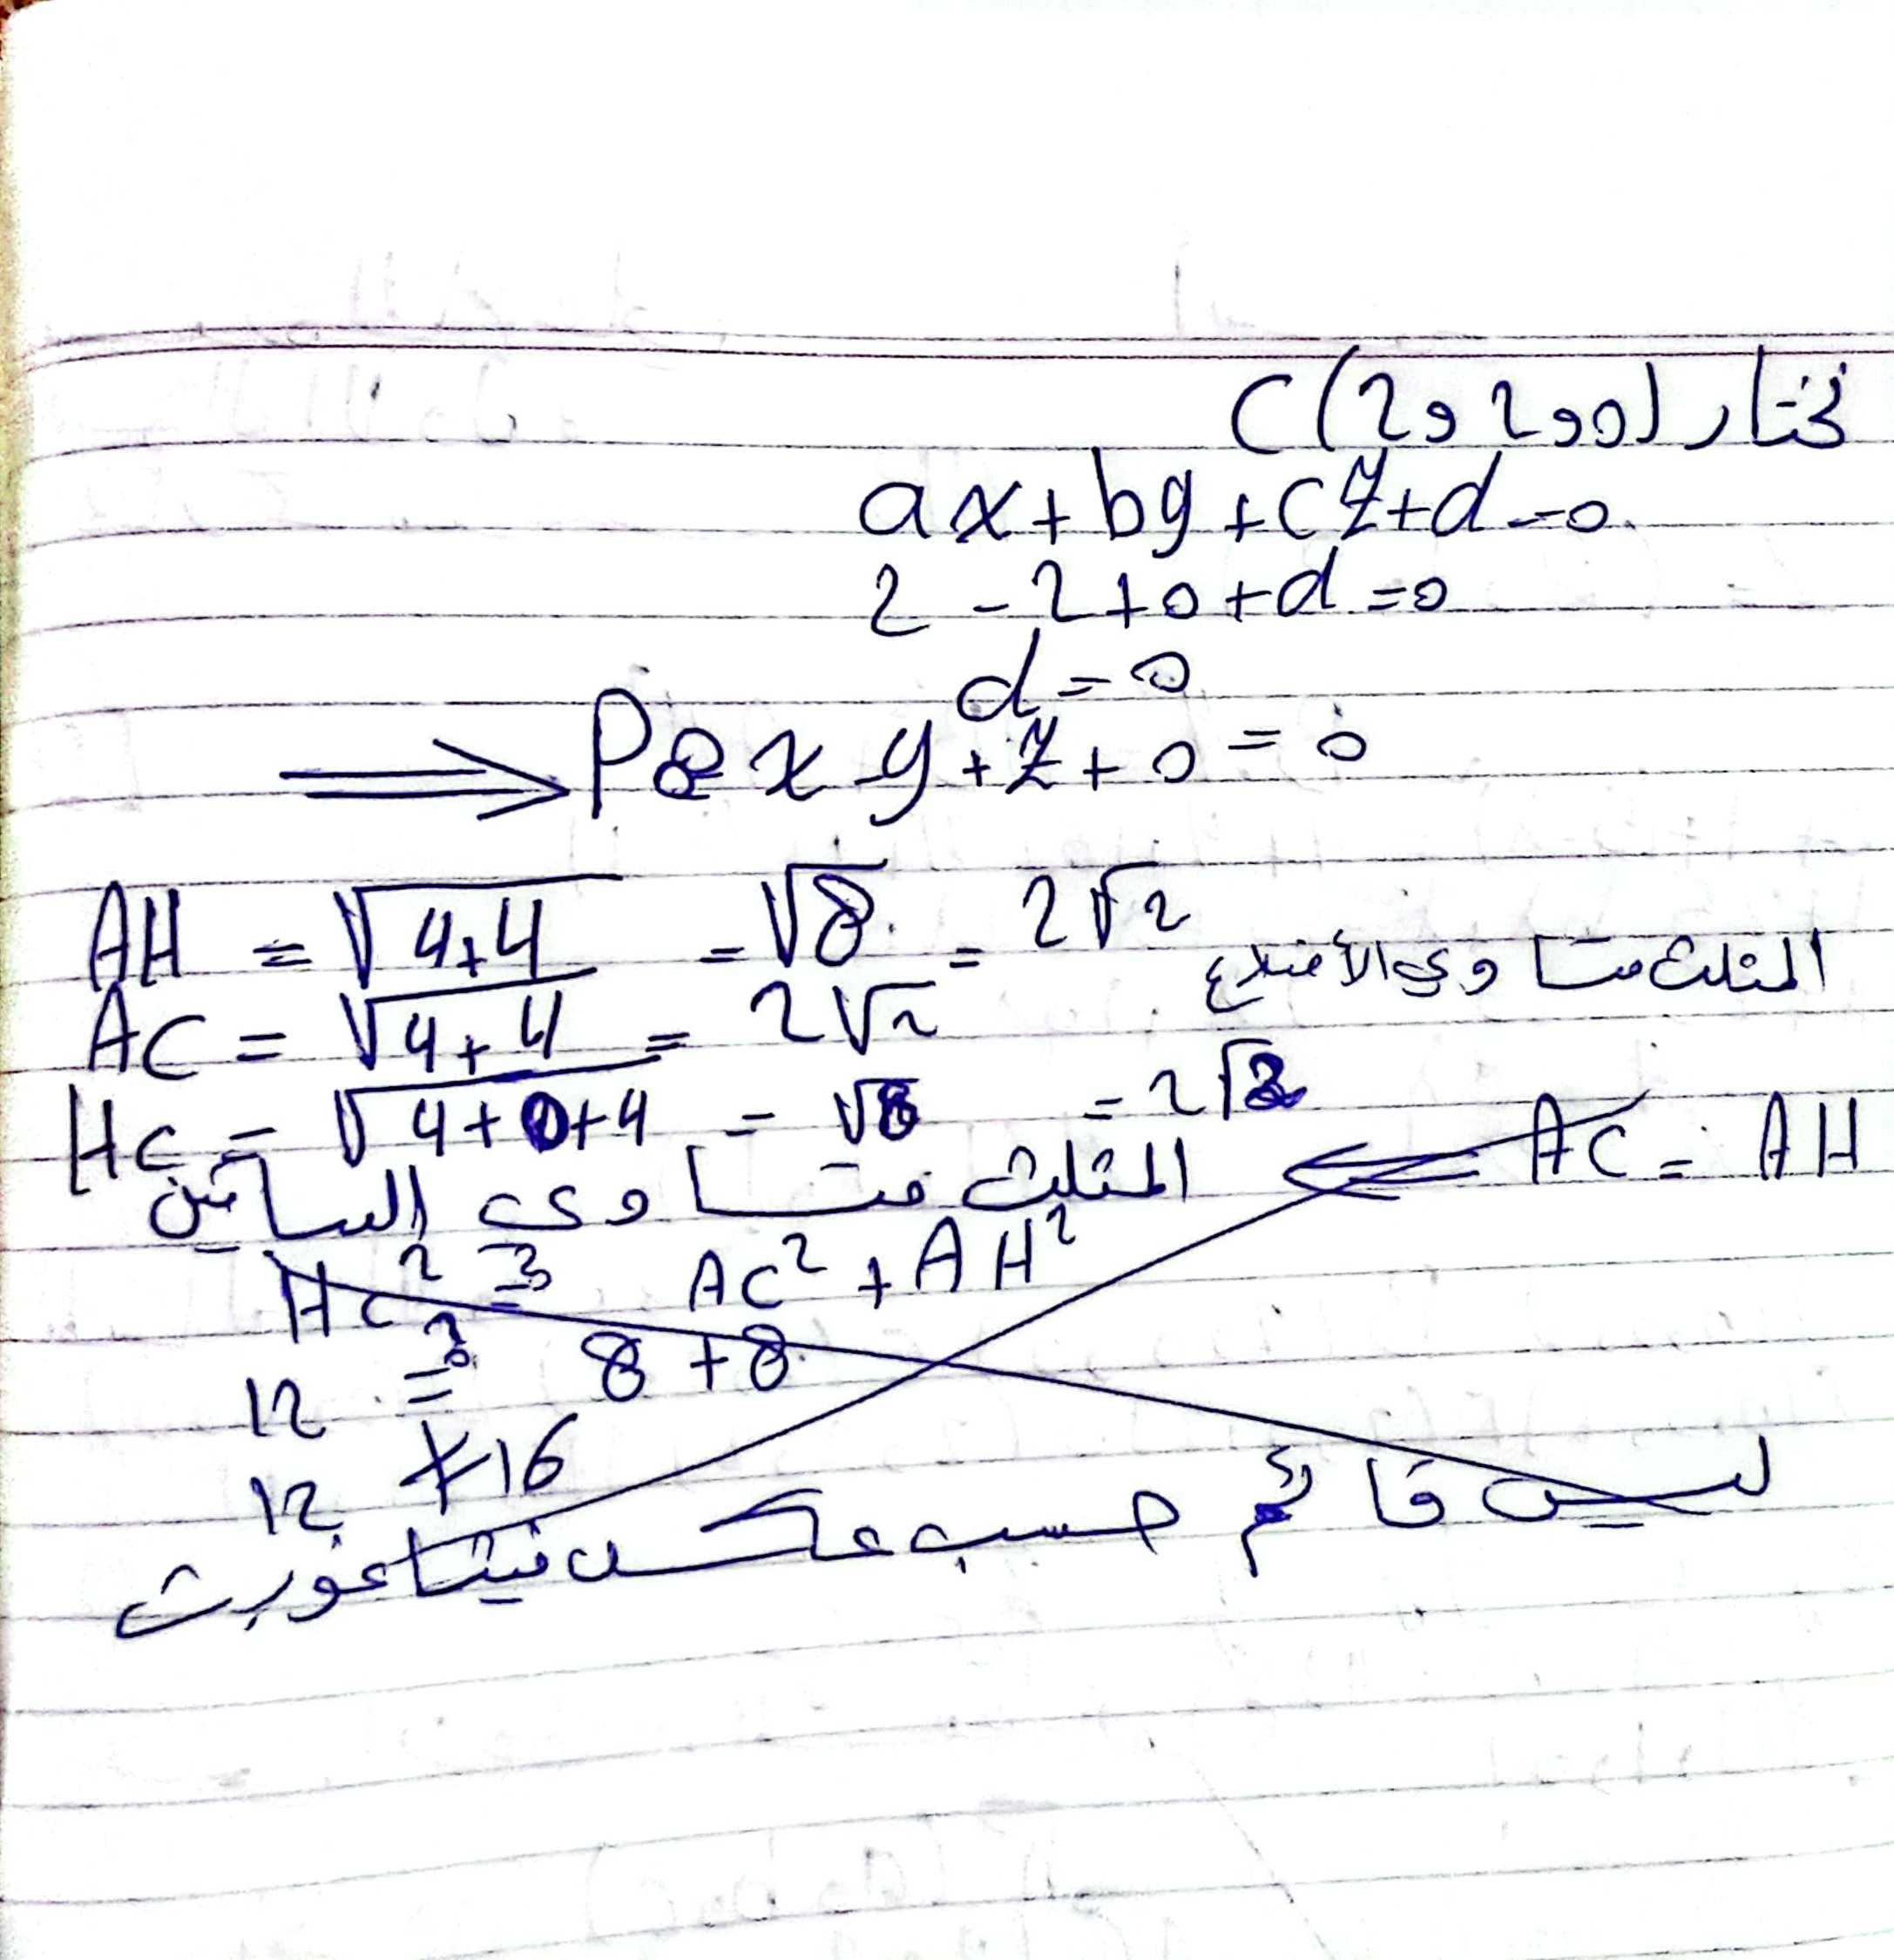 نختار C(2,2,0)
ax+by+cz+d=0
2-2+0+d=0
d=0
⇒ P: x-y+z+0=0
AH = √4+4 = √8 = 2√2
المثلث متساوي الأضلاع
AC = √4+4 = 2√2
HC = √4+0+4 = √8 = 2√2
AC = AH ⇐ المثلث متساوي الساقين
HC² =? AC² + AH²
12 =? 8+8
12 ≠ 16
ليس قائم حسب عكس فيتاغورث